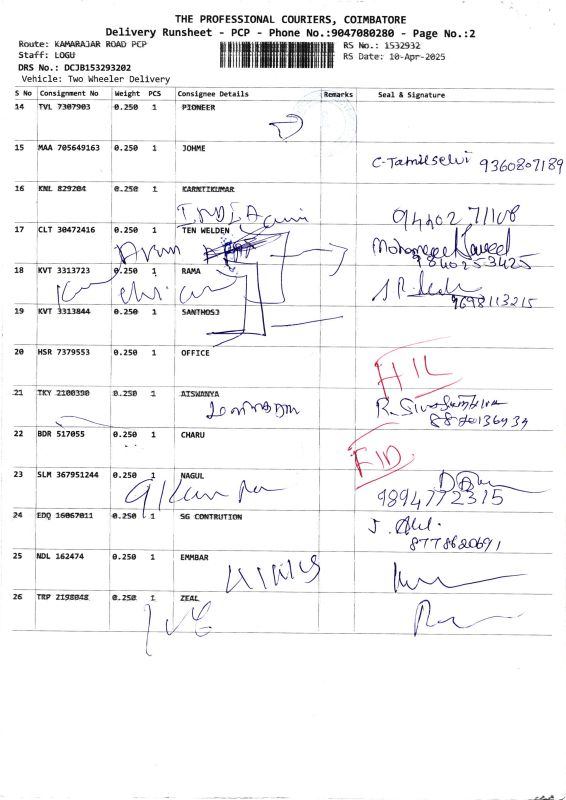 THE PROFESSIONAL COURIERS, COIMBATORE
Delivery Runsheet - PCP - Phone No.:9047080280 - Page No.:2
Route: KAMARAJAR ROAD PCP RS No.: 1532932
Staff: LOGU RS Date: 10-Apr-2025
DRS No.: DCJB153293202
Vehicle: Two Wheeler Delivery
S No Consignment No Weight PCS Consignee Details Remarks Seal & Signature
14 TVL 7307903 0.250 1 PIONEER
15 MAA 705649163 0.250 1 JOHME
C-Tamilselvi 9360807189
16 KNL 829204 0.250 1 KARNTIKUMAR
INDIA
17 CLT 30472416 0.250 1 TEN WELDEN
Arun
9840253425
18 KVT 3313723 0.250 1 RAMA
9698113215
19 KVT 3313844 0.250 1 SANTHOSJ
20 HSR 7379553 0.250 1 OFFICE
21 TKY 2100390 0.250 1 AISWANYA
22 BDR 517055 0.250 1 CHARU
23 SLM 367951244 0.250 1 NAGUL
9894772315
24 EDQ 16067011 0.250 1 SG CONTRUTION
8778620691
25 NDL 162474 0.250 1 EMMBAR
26 TRP 2198048 0.250 1 ZEAL